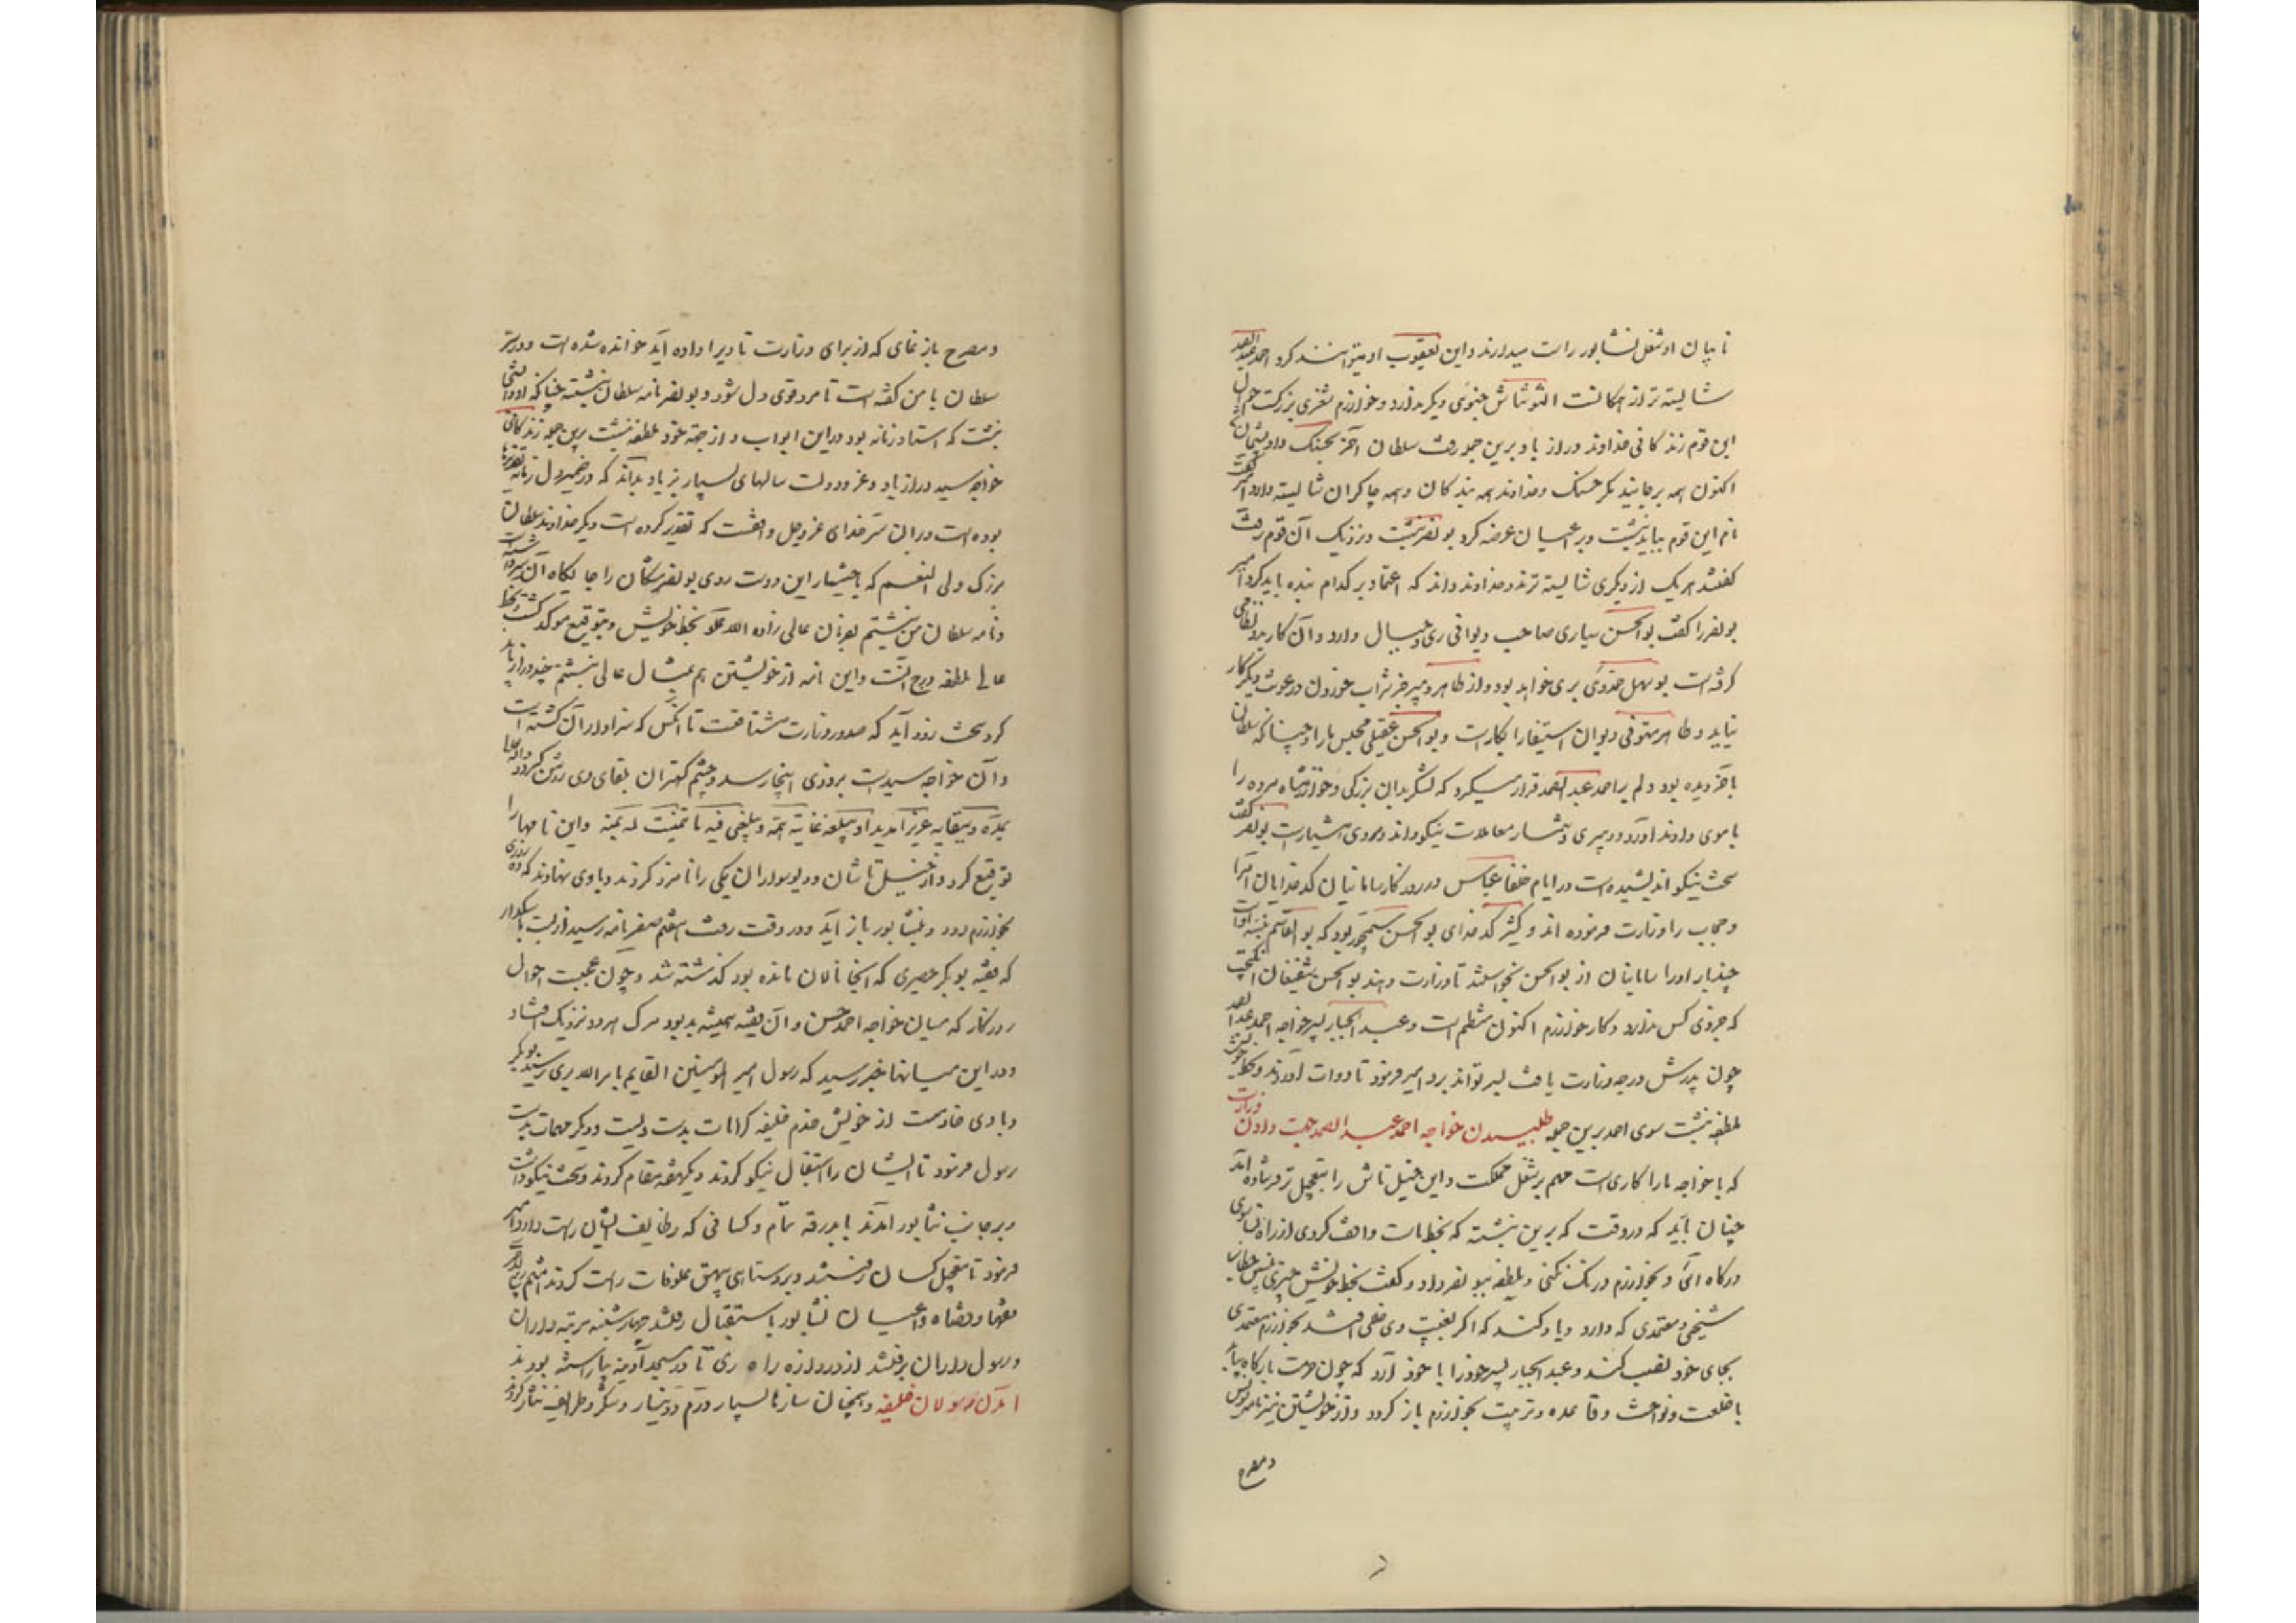 نایبان او شغل نشابور راست میدارند و این یعقوب او میتوانند کرد احمد عبدالصمد
شایسته تر از همکانست التونتاش چنوئی دیکر ندارد و خوارزم ثغری بزرکست جمله
این قوم زندکانی خداوند دراز باد برین جمله رفت سلطان آخر بحسنک داد و پشیمان شد
اکنون همه برجایند مکر حسنک و خداوند همه بندکان و همه چاکران شایسته دارد امیر گفت
نام این قوم بباید نبشت و بر اعیان عرضه کرد بونصر نبشت و نزدیک آن قوم رفت
کفتند هر یک از دیکری شایسته ترند و خداوند داند که اعتماد بر کدام بنده باید کرد امیر
بونصر را کفت بوالحسن سیاری صاحب دیوانی ری و جبال دارد و آن کار بدو نظامی
کرفته است بوسهل حمدوی بری خواهد بود و از طاهر دبیر جز شراب خوردن و رعونت دیکر کار
نیاید و طاهر مستوفی دیوان استیفا را بکارست و بوالحسن عقیلی مجلس ما را و چنانکه سلطان
باخر دیده بود و دلم بر احمد عبدالصمد قرار میکیرد که لشکر بدان بزرکی و خوارزمشاه مرده را
باموی داند آورد و دبیری و شمار معاملات نیکو داند و مردی هشیارست بونصر کفت
سخت نیکو اندیشیده است در ایام خلفا عباس و روزکار سامانیان کدخدایان امرا
و حجاب را وزارت فرموده اند و کثیر کدخدای بوالحسن سیمجور بود که بوالقاسم نبسه اوست
چندبار اورا سامانیان از بوالحسن بخواستند تا وزارت دهند بوالحسن شفیعان انکیخت
که جز وی کس ندارد و کار خوارزم اکنون منظم است و عبدالجبار پسر خواجه احمد عبدالصمد
چون پدرش درجه وزارت یافت لیر تواند برد امیر فرمود تا دوات آوردند و بخط خویش
ملطفه نبشت سوی احمد برین جمله طلبیدن خواجه احمد عبدالصمد جهت دادن وزارت
که با خواجه ما را کاری است مهم بر شغل مملکت و این خیلتاش را بتعجیل تر فرستاده آمد
چنان باید که در وقت که برین نبشته که بخط ماست واقف کردی از راه نسا سوی
درکاه آئی و بخوارزم درنک نکنی و ملطفه ببونصر داد و کفت بخط خویش چیزی بنویس خطاب
شیخی و معتمدی که دارد و یاد کند که اکر بغیبت وی خللی افتد بخوارزم معتمدی
بجای خود نصب کند و عبدالجبار پسر خود را با خود آرد که چون حرمت بارکاه بیابد
با خلعت و نواخت و قاعده و ترتیب بخوارزم باز کردد و از خویشتن نیز نامه بنویس
و مصرح
و مصرح باز نمای که از برای وزارت تا ویرا داده آید خوانده شده است و در ستر
سلطان با من کفته است تا مرد قوی دل شود و بونصر نامه سلطان نبشته چنانکه او دانستی
نبشت که استاد زمانه بود در این ابواب و از جهة خود ملطفه نبشت برین جمله زندکانی
خواجه سید دراز باد و عز و دولت سالهای بسیار بزیاد بداند که در ضمیر دل زمانه تقدیرها
بوده است و در آن ستر خدای عز و جل واقفست که تقدیر کرده است و دیکر خداوند سلطان
بزرک ولی النعم که باختیار این دوست روی بونصر مشکان را جایکاه آن سر داشته است
و نامه سلطان من نبشتم بفرمان عالی زاده الله علوا بخط خویش و بتوقیع موکد کشت و بخط
عالی ملطفه درج آنست و این نامه از خویشتن هم بمثال عالی نبشتم چند دراز باید
کرد سخت زود آید که صدر وزارت مشتاقست تا آنکس که سزاوار آن کشته است
و آن خواجه سیدست بزودی اینجا رسد و چشم کهتران بلقای وی روشن کردد والله تعالی
یمده و یبقائه عزیزا مدیدا و یبلغه غایة همته و یبلغنی فیه ما تمنیت له بمنه و این نامهارا
توقیع کرد و از خیلتاشان و دیوسواران یکی را نامزد کردند و با وی نهادند که ده روزی
بخوارزم رود و بنشابور باز آید و در وقت رفت هفتم صفر نامه رسید از بست باسکدار
که فقیه بوبکر حصیری که آنجا نالان مانده بود کذشته شد و چون عجبست احوال
روزکار که میان خواجه احمد حسن و آن فقیه همیشه بد بود مرک هر دو نزدیک افتاد
و در این میانها خبر رسید که رسول امیر المومنین القایم بامر الله بری رسید بوبکر
و با وی خادمست از خویش خدم خلیفه کرامات بدست ویست و دیکر مهمات بدست
رسول فرمود تا ایشان را استقبال نیکو کردند و یکهفته مقام کردند و سخت نیکو داشت
و بر جانب نشابور آمدند با بدرقه تمام و کسانی که وظایف ایشان راست دارد امیر
فرمود تا بتعجیل کسان رفتند و بروستای بیهق علوفات راست کردند هشتم ربیع الآخر
فقها و قضاه و اعیان نشابور باستقبال رفتند چهارشنبه مرتبه داران
و رسول داران برفتند از دروازه راه ری تا در مسجد آدینه بیاراسته بودند
آمدن رسولان خلیفه و همچنان بازارها بسیار درم و دینار و شکر و طرایف نثار کردند